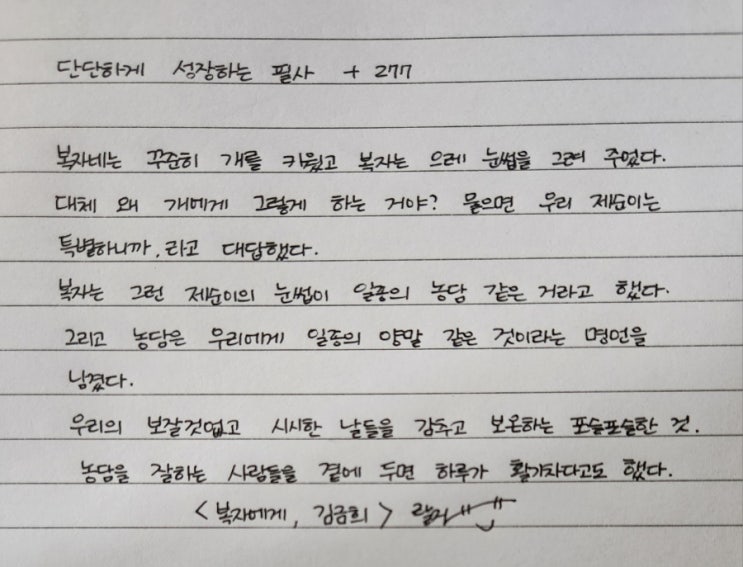 단단하게 성장하는 필사 + 277
복자네는 꾸준히 개를 키웠고 복자는 으레 눈썹을 그려 주었다.
대체 왜 개에게 그렇게 하는 거야? 물으면 우리 제순이는
특별하니까, 라고 대답했다.
복자는 그런 제순이의 눈썹이 일종의 농담 같은 거라고 했다.
그리고 농담은 우리에게 일종의 양말 같은 것이라는 명언을
남겼다.
우리의 보잘것없고 시시한 날들을 감추고 보온하는 포슬포슬한 것.
농담을 잘하는 사람들을 곁에 두면 하루가 활기차다고도 했다.
<복자에게, 김금희>